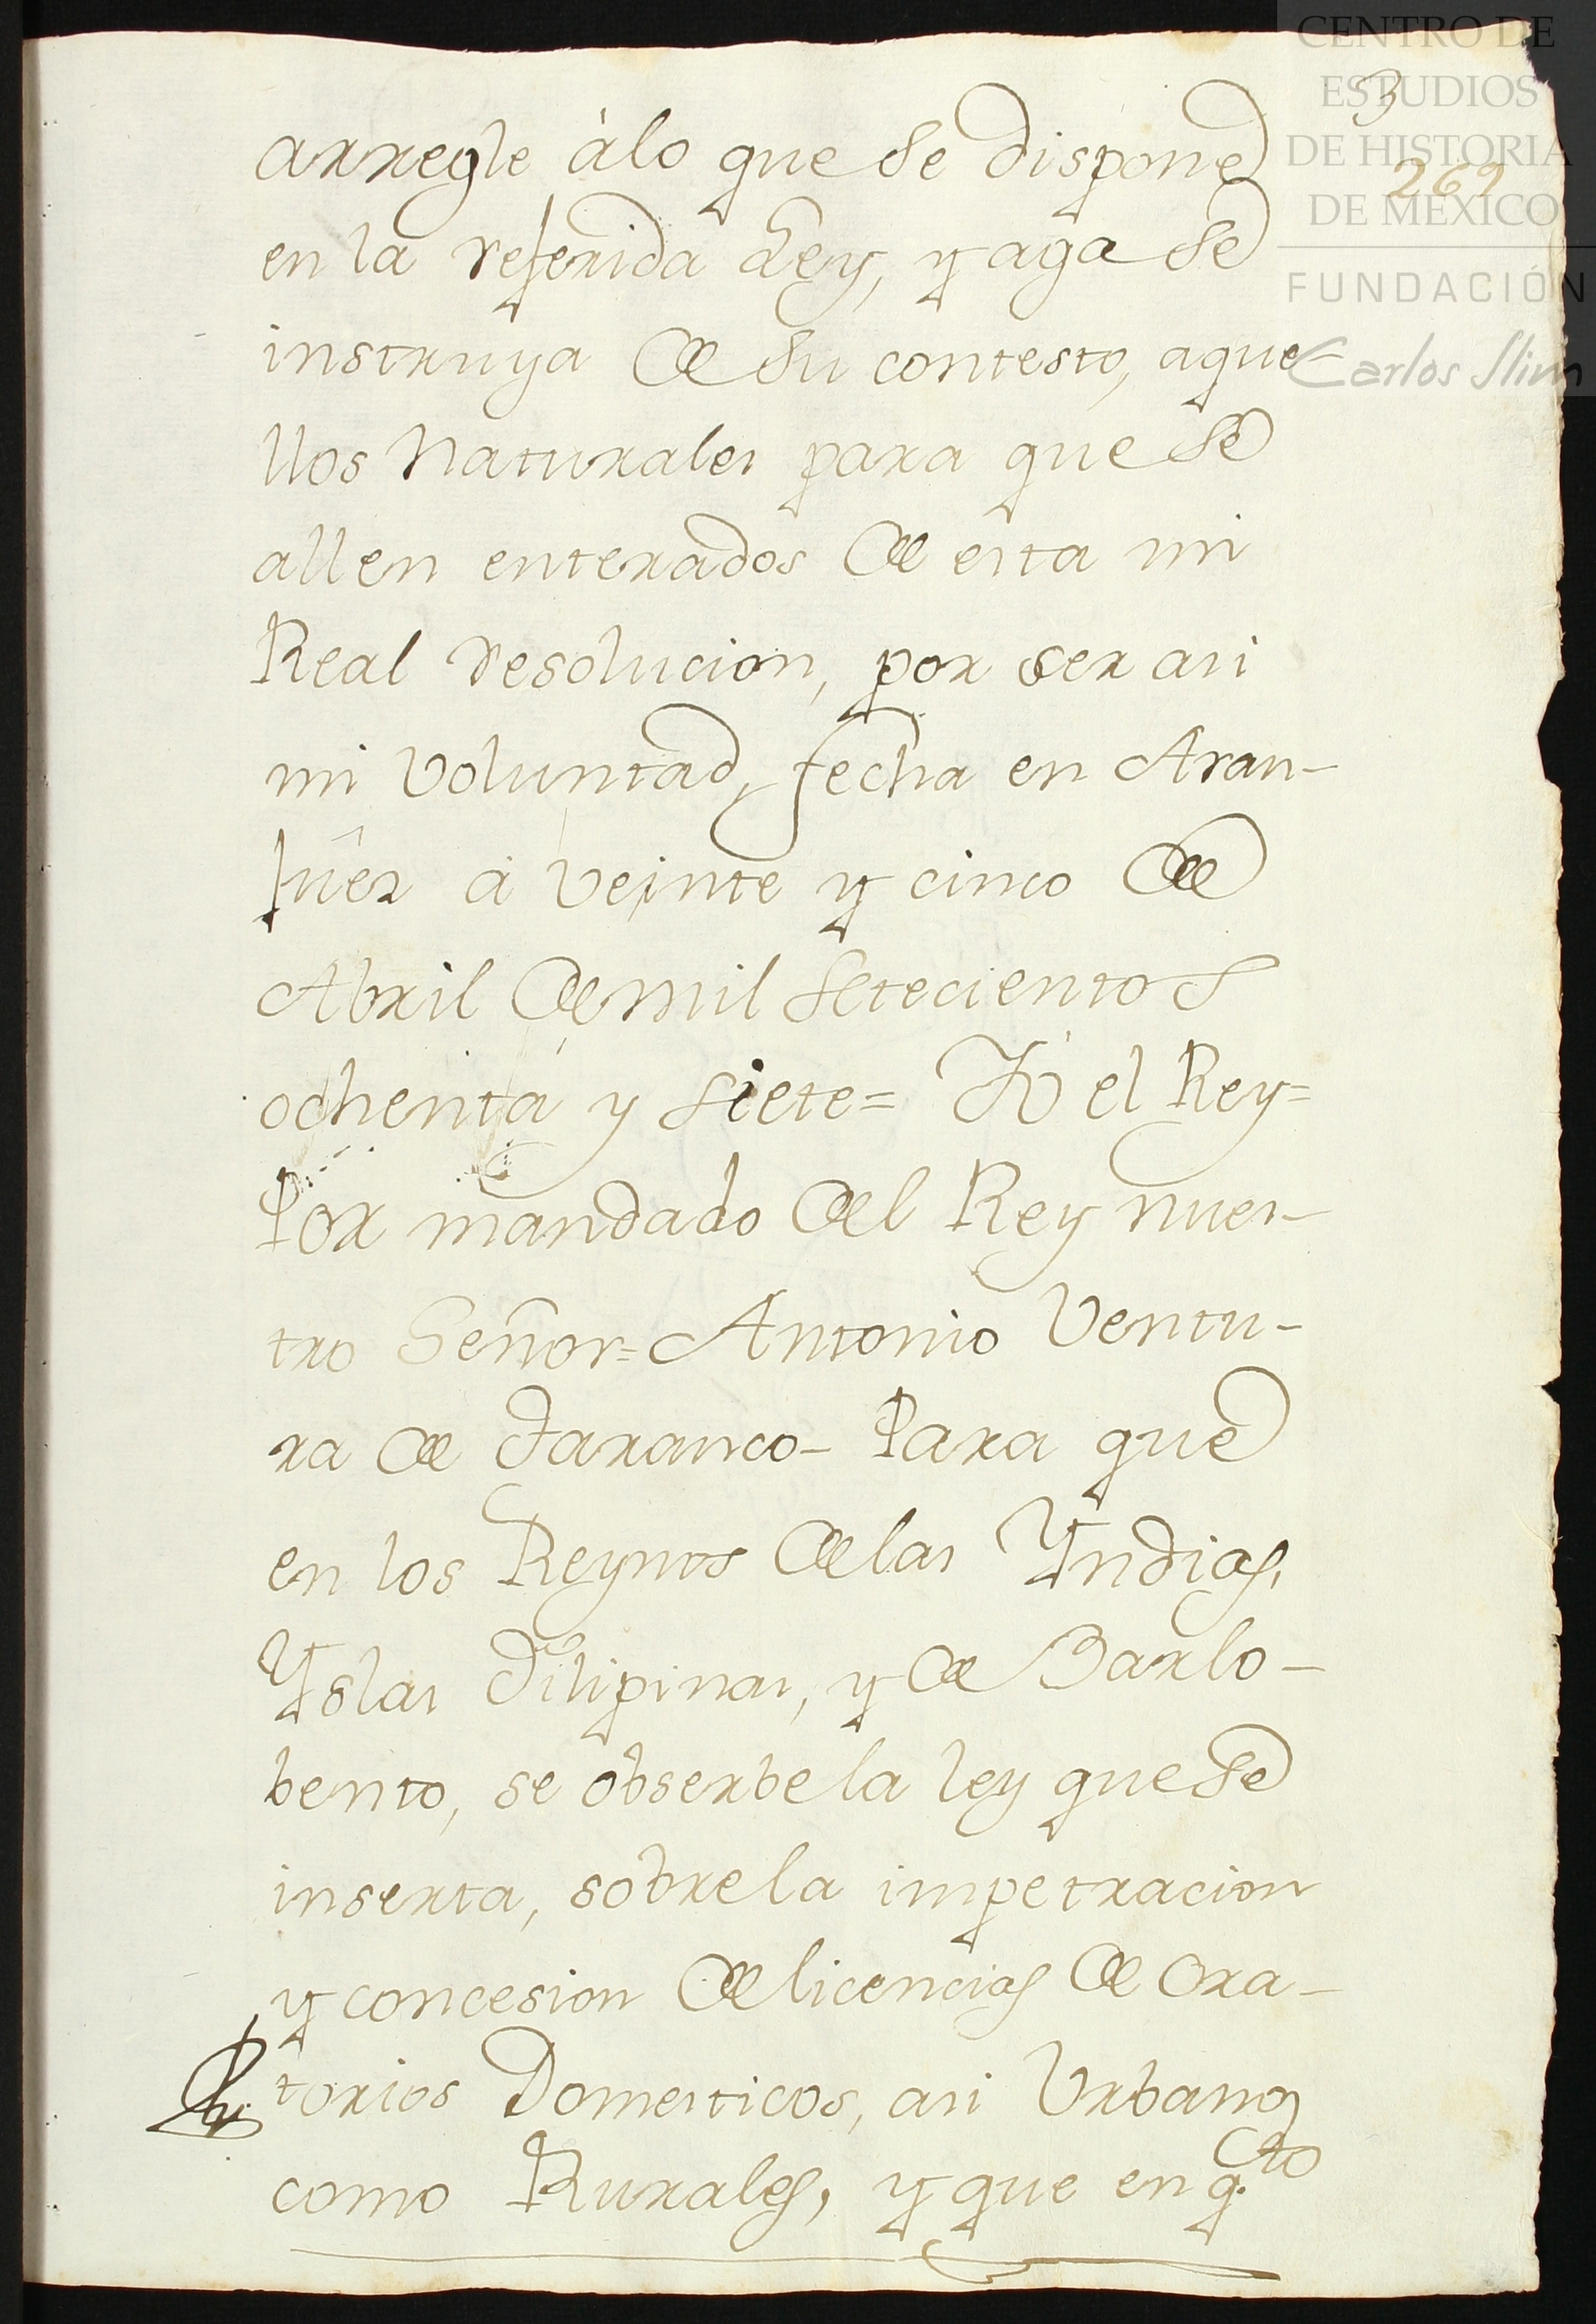 CENTRO DE
ESTUDIOS
DE HISTORIA
DE MÉXICO
FUNDACIÓN
Carlos Slim
3
269
arregle àlo que se dispone
en la referida Ley, y aga se
instruya de su contesto, aque=
llos Naturales para que se
allen enterados de esta mi
Real resolucion, por ser asi
mi voluntad, fecha en Aran-
juez a veinte y cinco de
Abril de mil setecientos
ochenta y siete= Yò el Rey=
Por mandado del Rey nues-
tro Señor= Antonio Ventu-
ra de Taranco- Para que
en los Reynos de las Yndias,
Yslas Filipinas, y de Barlo-
bento, se obserbe la ley que se
inserta, sobre la impetracion
y concesion de licencias de Ora-
torios Domesticos, asi Urbanos
como Rurales, y que en q.to